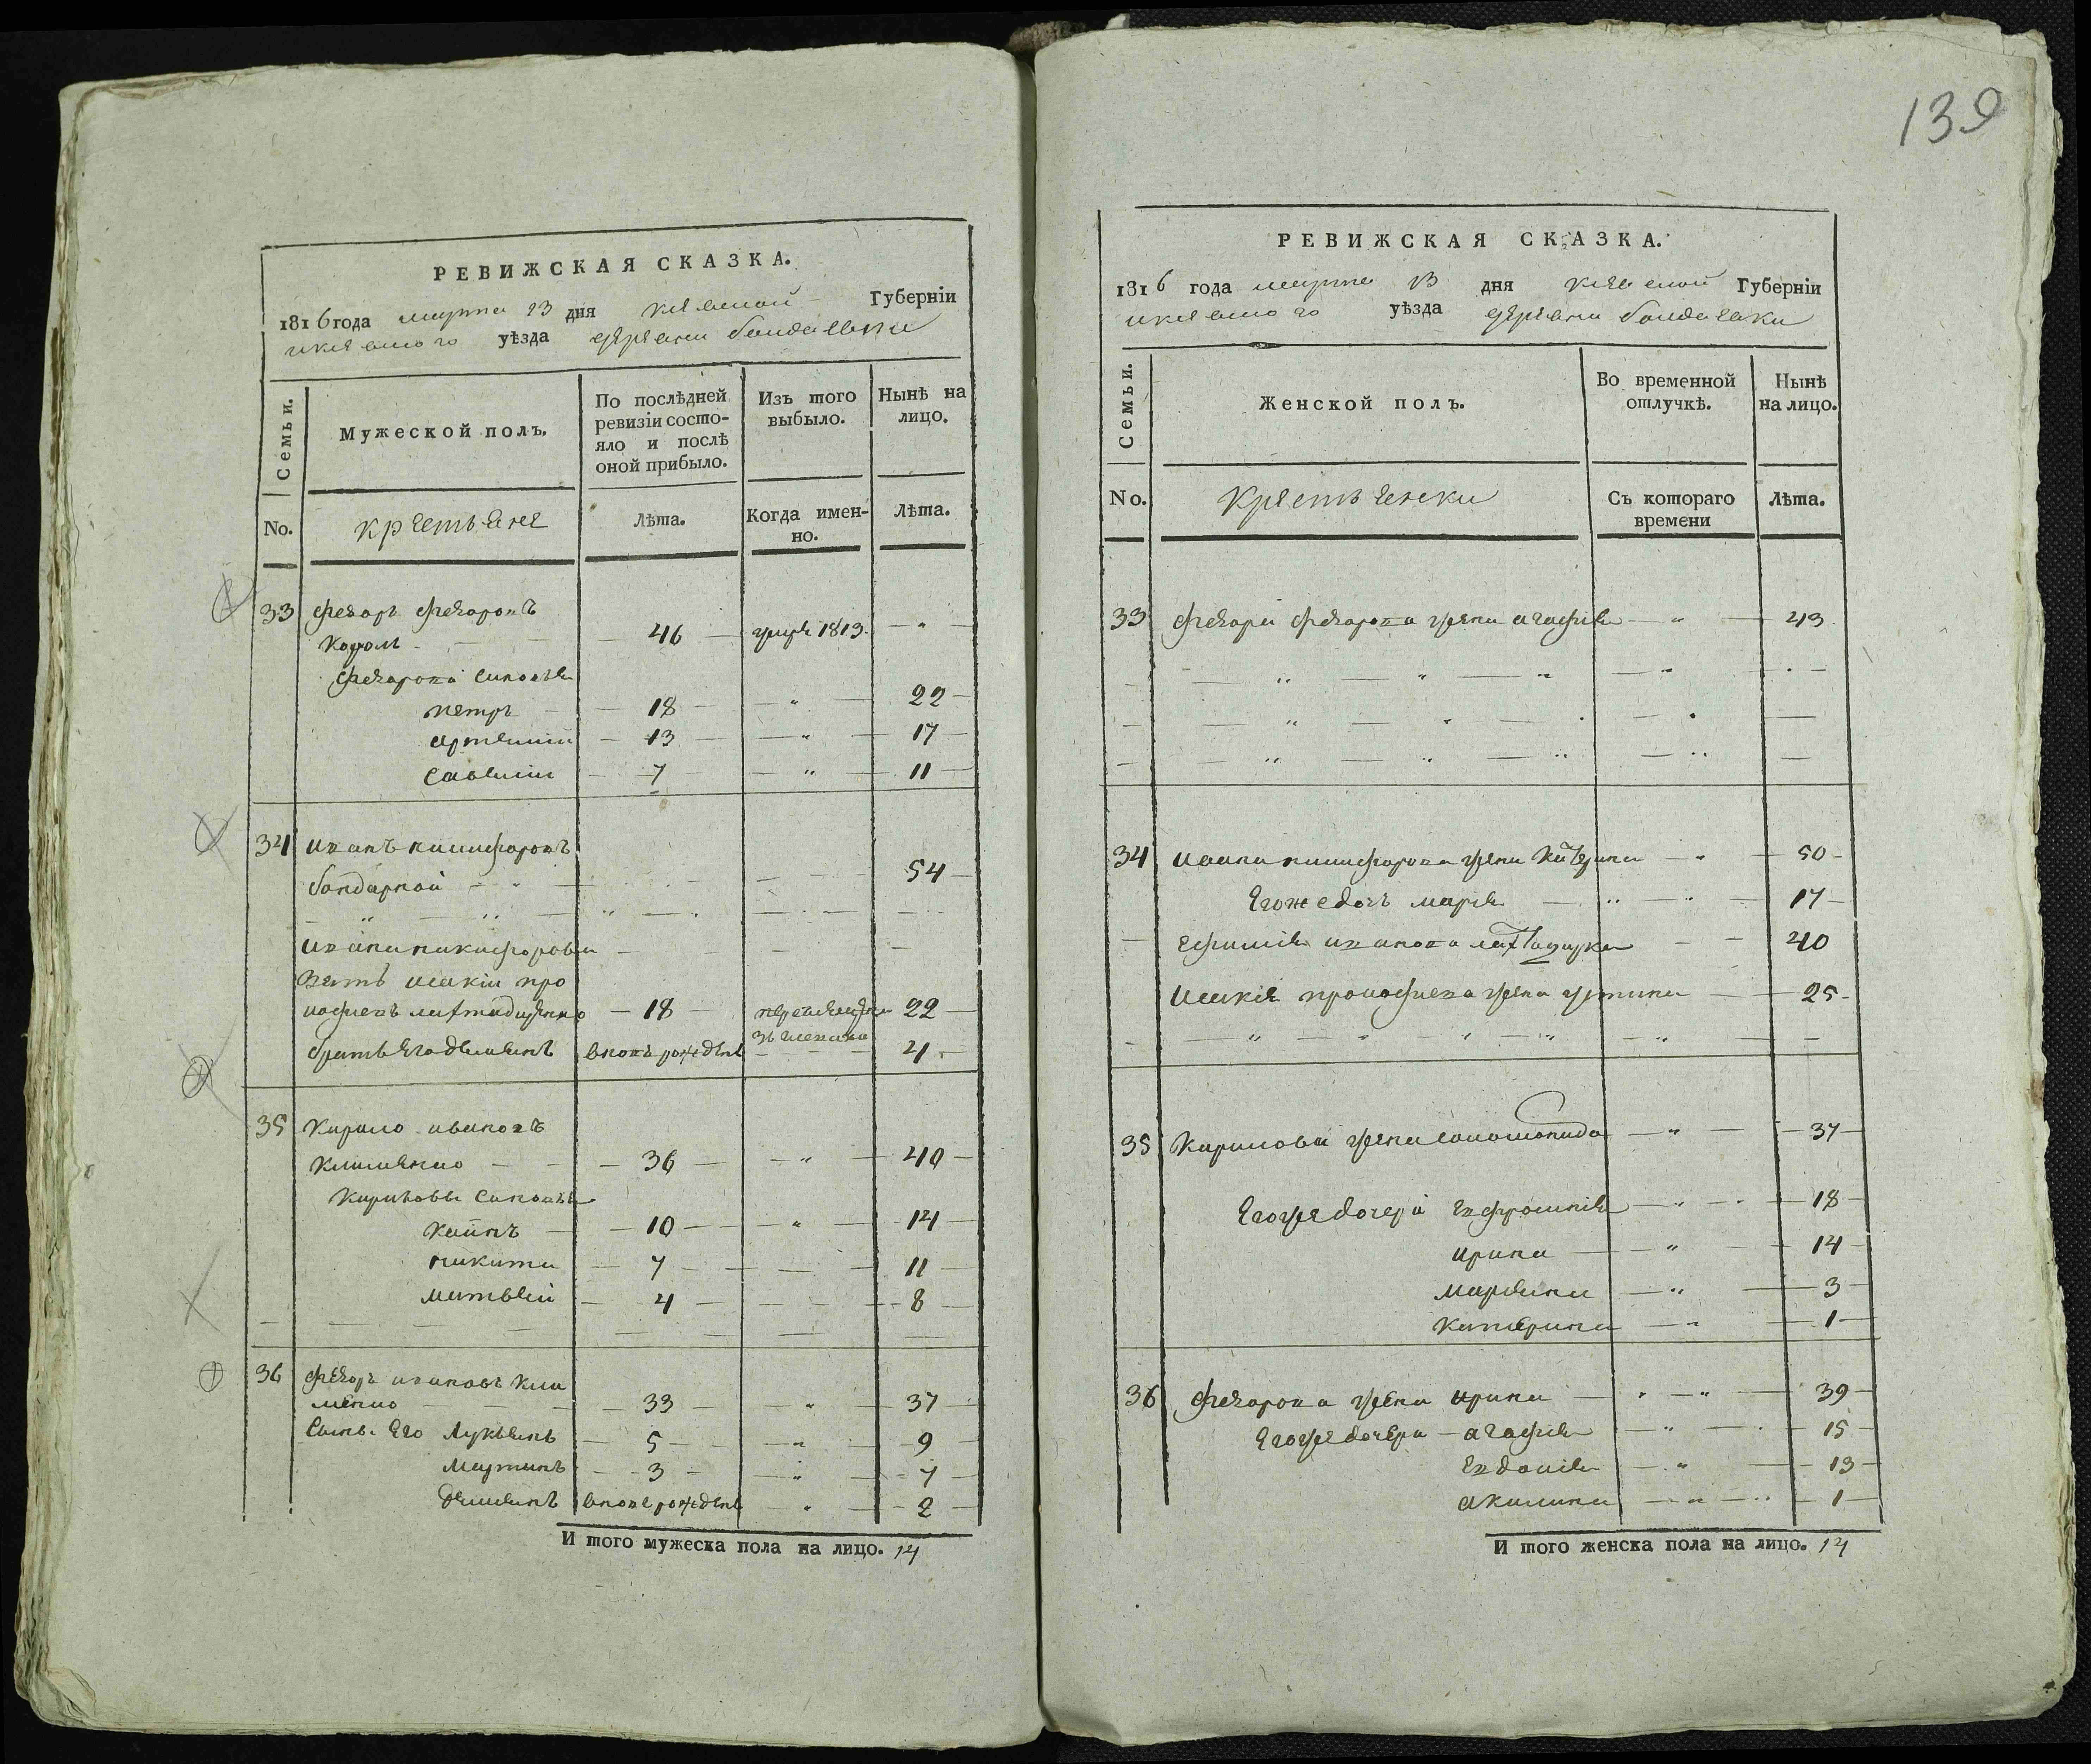 139
РЕВИЖСКАЯ СКАЗКА.
1816 года марта 13 дня киевской Губернїи
и киевского уѣзда деревни бондаевки
Семьи.
Мужеской полъ.
По послѣдней ревизїи состояло и послѣ оной прибыло.
Изъ того выбыло.
Нынѣ на лицо.
No.
крестьяне
Лѣта.
Когда именно.
Лѣта.
33 Федоръ Федоровъ
Король 46 умре 1813.
Федорова синовья
петръ 18 22
артемий 13 17
савелии 7 11
34 иванъ никифоровъ
бондарной 54
ивана никифорова
зять иакїи про
18 22
братъ его демьянъ вновь рожденъ 4
35 Кирило ивановъ
Клименко 36 40
Кирилова синовья
10 14
никита 7 11
матвѣй 4 8
36 Федоръ ивановъ Кли
менко 33 37
Сынъ его Лукьянъ 5 9
Мартинъ 3 7
демьянъ вновь рожденъ 2
И того мужеска пола на лицо. 14
РЕВИЖСКАЯ СКАЗКА.
1816 года марта 13 дня киевской Губернїи
и киевского уѣзда деревни бондаевки
Семьи.
Женской полъ.
Во временной отлучкѣ.
Нынѣ на лицо.
No.
крестьянки
Съ котораго времени
Лѣта.
33 Федора Федорова жена агафия 43
34 ивана никифорова жена Катерина 50
Его же дочь мария 17
ефимия иванова 40
жена устина 25
35 Кирилова жена соломонида 37
Его же дочери Евфросиния 18
ирина 14
Марьяна 3
Катерина 1
36 Федорова жена ирина 39
Его же дочери агафия 15
Евдокия 13
акилина 1
И того женска пола на лицо. 14